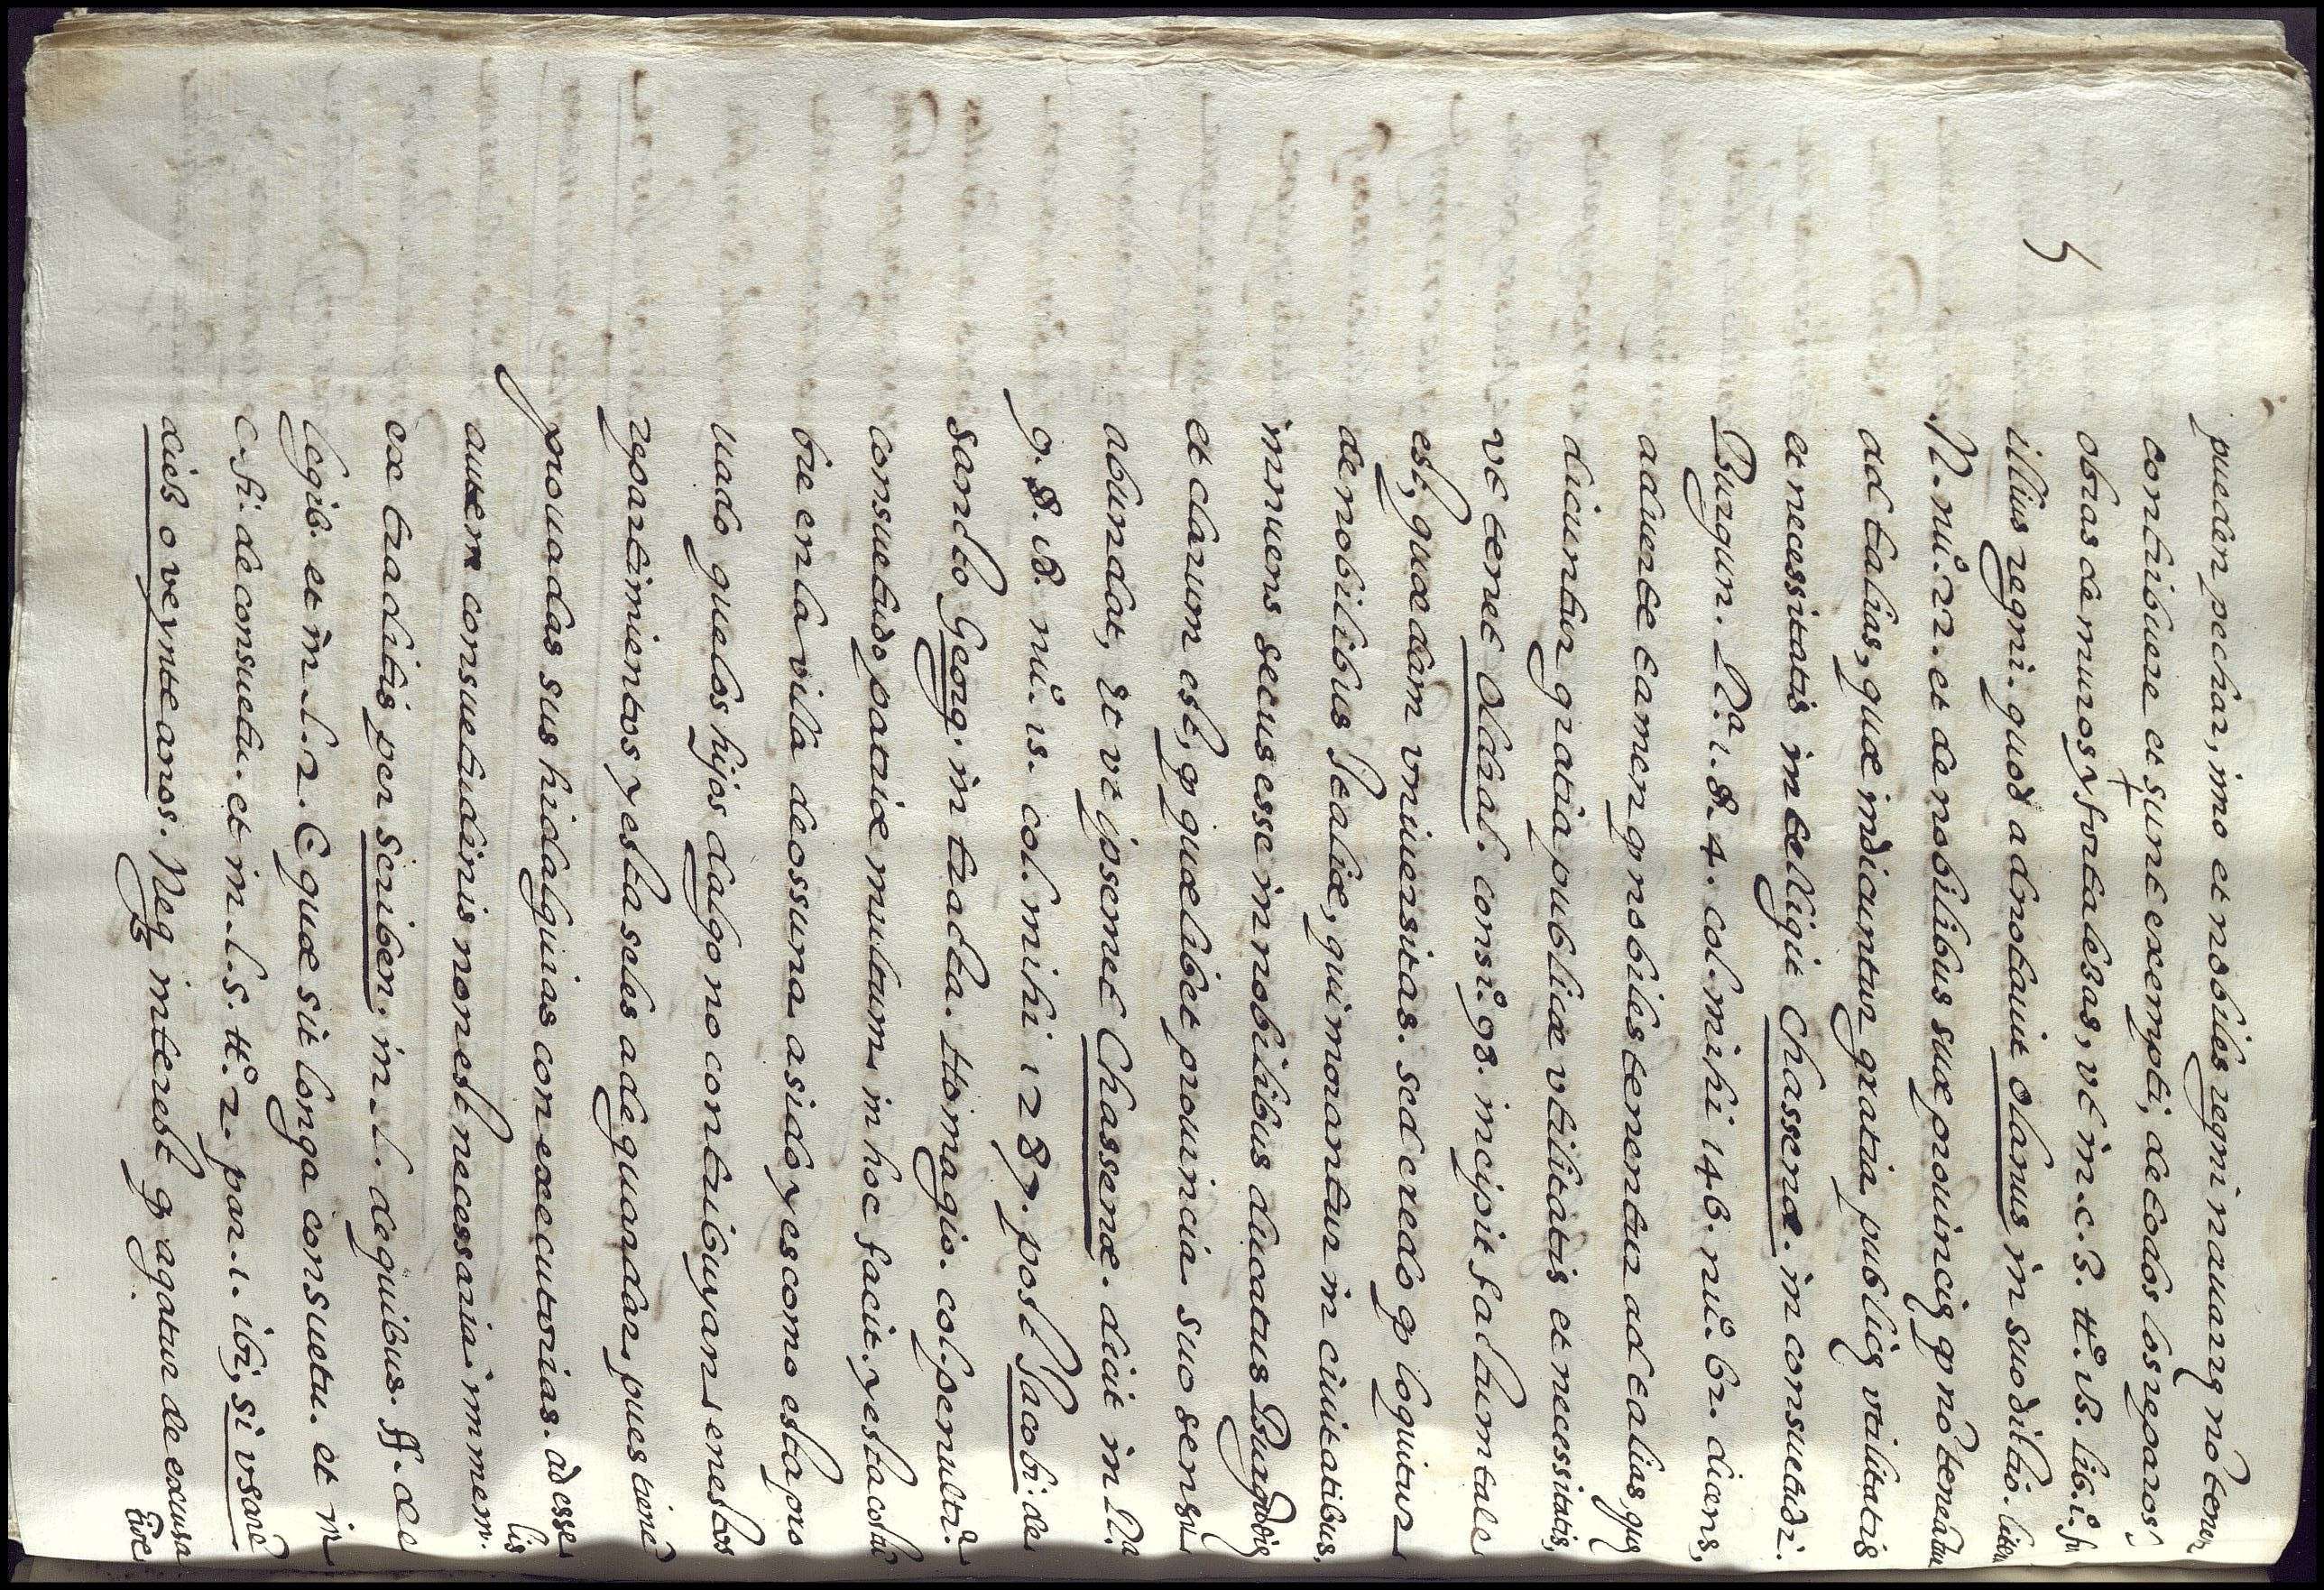 pueden pechar, imo et nobiles regni nauarrę nō tenen
contribuere et sunt exempti, de todos los reparos
obras de muros y fortalezas, vt in. c. 3. tt.º 18. lib. 1. fo
illius regni. quod adnotauit Olanus in suo dictio. litera
N. nu.º 22. et de nobilibus suæ prouincię q nō teneātur
ad talias, quæ indicuntur gratia publicę vtilitatis
et necessitatis intelligit Chassenæ. in consuetudi.
Burgun. R.ª 1. §. 4. col. mihi 146. nu.º 62. dicens,
aduerte tamen q nobiles tenentur ad talias, quę
dicuntur gratia publicæ vtilitatis et necessitatis,
vt tenet Oldral. consi.º 98. incipit factum tale
est, quædam vniuersitas. sed credo q loquitur
de nobilibus Italiæ, qui morantur in ciuitatibus.
innuens secus esse in nobilibus ducatus Burgūdię
et clarum est, q quælibet prouincia suo sensu
abundat, Et vt ipsemet Chassenæ. dicit in R.ª
9. §. 18. nu.º 15. col. mihi 1287. post Iacobi. de
sancto Georg. in tracta. Homagio. col. penulti.ª
consuetudo patriæ multum in hoc facit. y esta costū
bre en la villa de ossuna a sido y es como esta pro
uado que los hijos dalgo no contribuyan en estos
repartimientos y esta se les a de guardar, pues tienē
prouadas sus hidalguias con executorias. ad esse
lis
autem consuetudinis non est necessaria immem.
ex traditis per scriben. in. l. de quibus. ff. de
legib. et in. l. 2. C quæ sit longa consuetu. et in
c. fi. de consuetu. et in. l. 5. tt.º 2. par. 1. ibi, si vsarē
diez o veynte anos. Neq; interest q agatur de excusa
tiōe
5